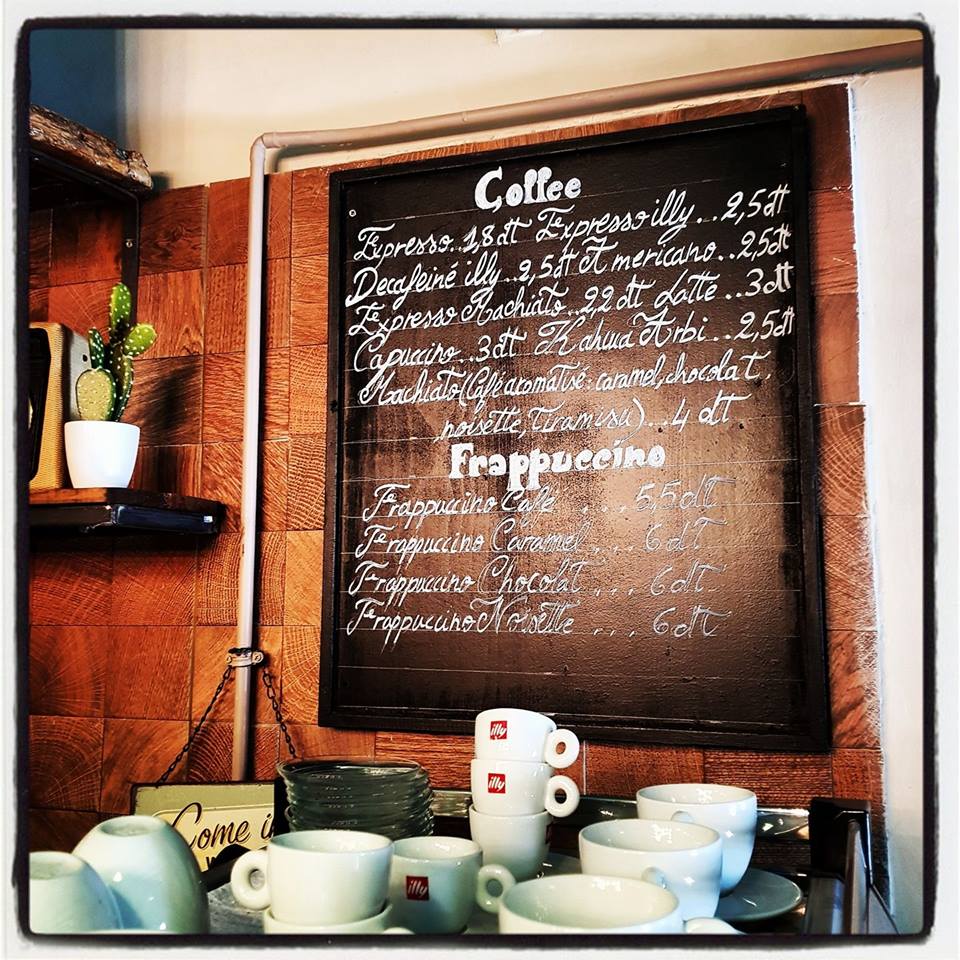 Coffee
Expresso..1,8dt Expresso illy...2,5dt
Decafeiné illy..2,5dt Americano..2,5dt
Expresso Machiato..2,2dt Latte..3dt
Capuccino..3dt Kahwa Arbi..2,5dt
Machiato(Café aromatisé: caramel,chocolat,
noisette,Tiramisu)..4 dt
Frappuccino
Frappuccino Café ... 5,5dt
Frappuccino Caramel... 6dt
Frappuccino Chocolat... 6dt
Frappuccino Noisette ... 6dt
illy
illy
illy
Come in